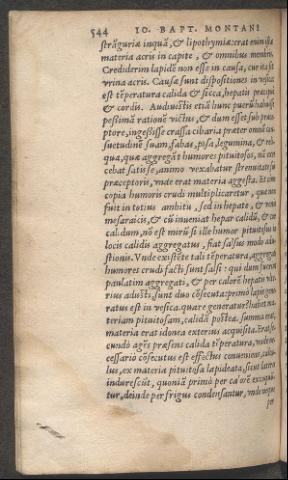 544 IO. BAPT. MONTANI
strāguriæ inquā, & lipothymiæ: erat enim ista
materia acris in capite, & omnibus membris.
Crediderim lapidē non esse in causa, cur ita sit
vrina acris. Causæ sunt dispositiones in vesica
est tēperatura calida & sicca, hepatis præcipuè
& cordis. Audiuistis etiā hunc puerū habuisse
pessimā rationē victus, & dum esset sub præce
ptore, ingessisse crassa cibaria præter omnē con
suetudinē suam, fabas, pisa, legumina, & reli
qua, quæ aggregāt humores pituitosos, nā
cebat satis se, animo vexabatur
præceptoris, vnde erat materia aggesta. Et cum
copia humoris crudi multiplicaretur, quæ non
fuit in totius ambitu, sed in hepate, & venis
mesaraicis, & cū inueniat hepar calidū, & cor
calidum, nō est mirū si ille humor pituitosus in
locis calidis aggregatus, fiat salsus modo adu
stionis. Vnde existēte tali tēperatura, aggregati
humores crudi facti sunt salsi: qui dum fuerint
paulatim aggregati, & per calorē hepatis vlte
rius adusti, sunt duo cōsecuta: primò lapis gene
ratus est in vesica. quare generatur? habet ma
teriam pituitosam, calidā postea. summa erat,
materia erat idonea exterius acquisita. Erat se
cundò agēs præsens calida tēperatura, vnde ne
cessariò cōsecutus est effectus conueniens, calcu
lus, ex materia pituitosa lapideata, sicut latera
indurescūt, quoniā primò per calorē exicquun
tur, deinde per frigus condensantur, vnde neque
per